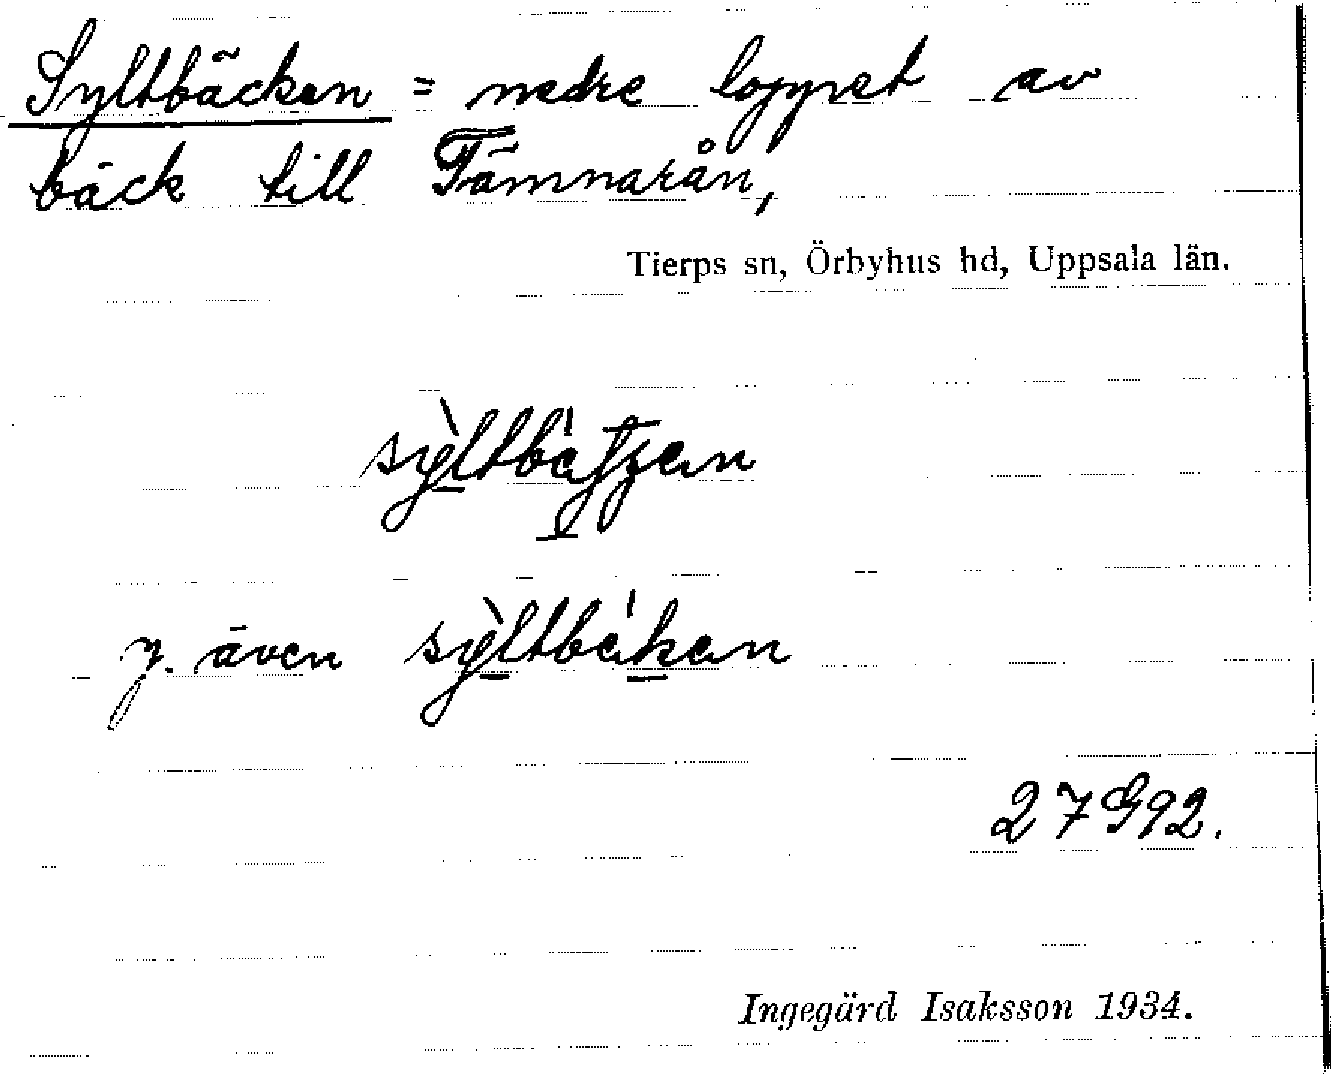 Syltbäcken = nedre loppet av
bäck till Tämnarån,
Tierps sn, Örbyhus hd, Uppsala län.
y. även
27 G92.
Ingegärd Isaksson 1934.